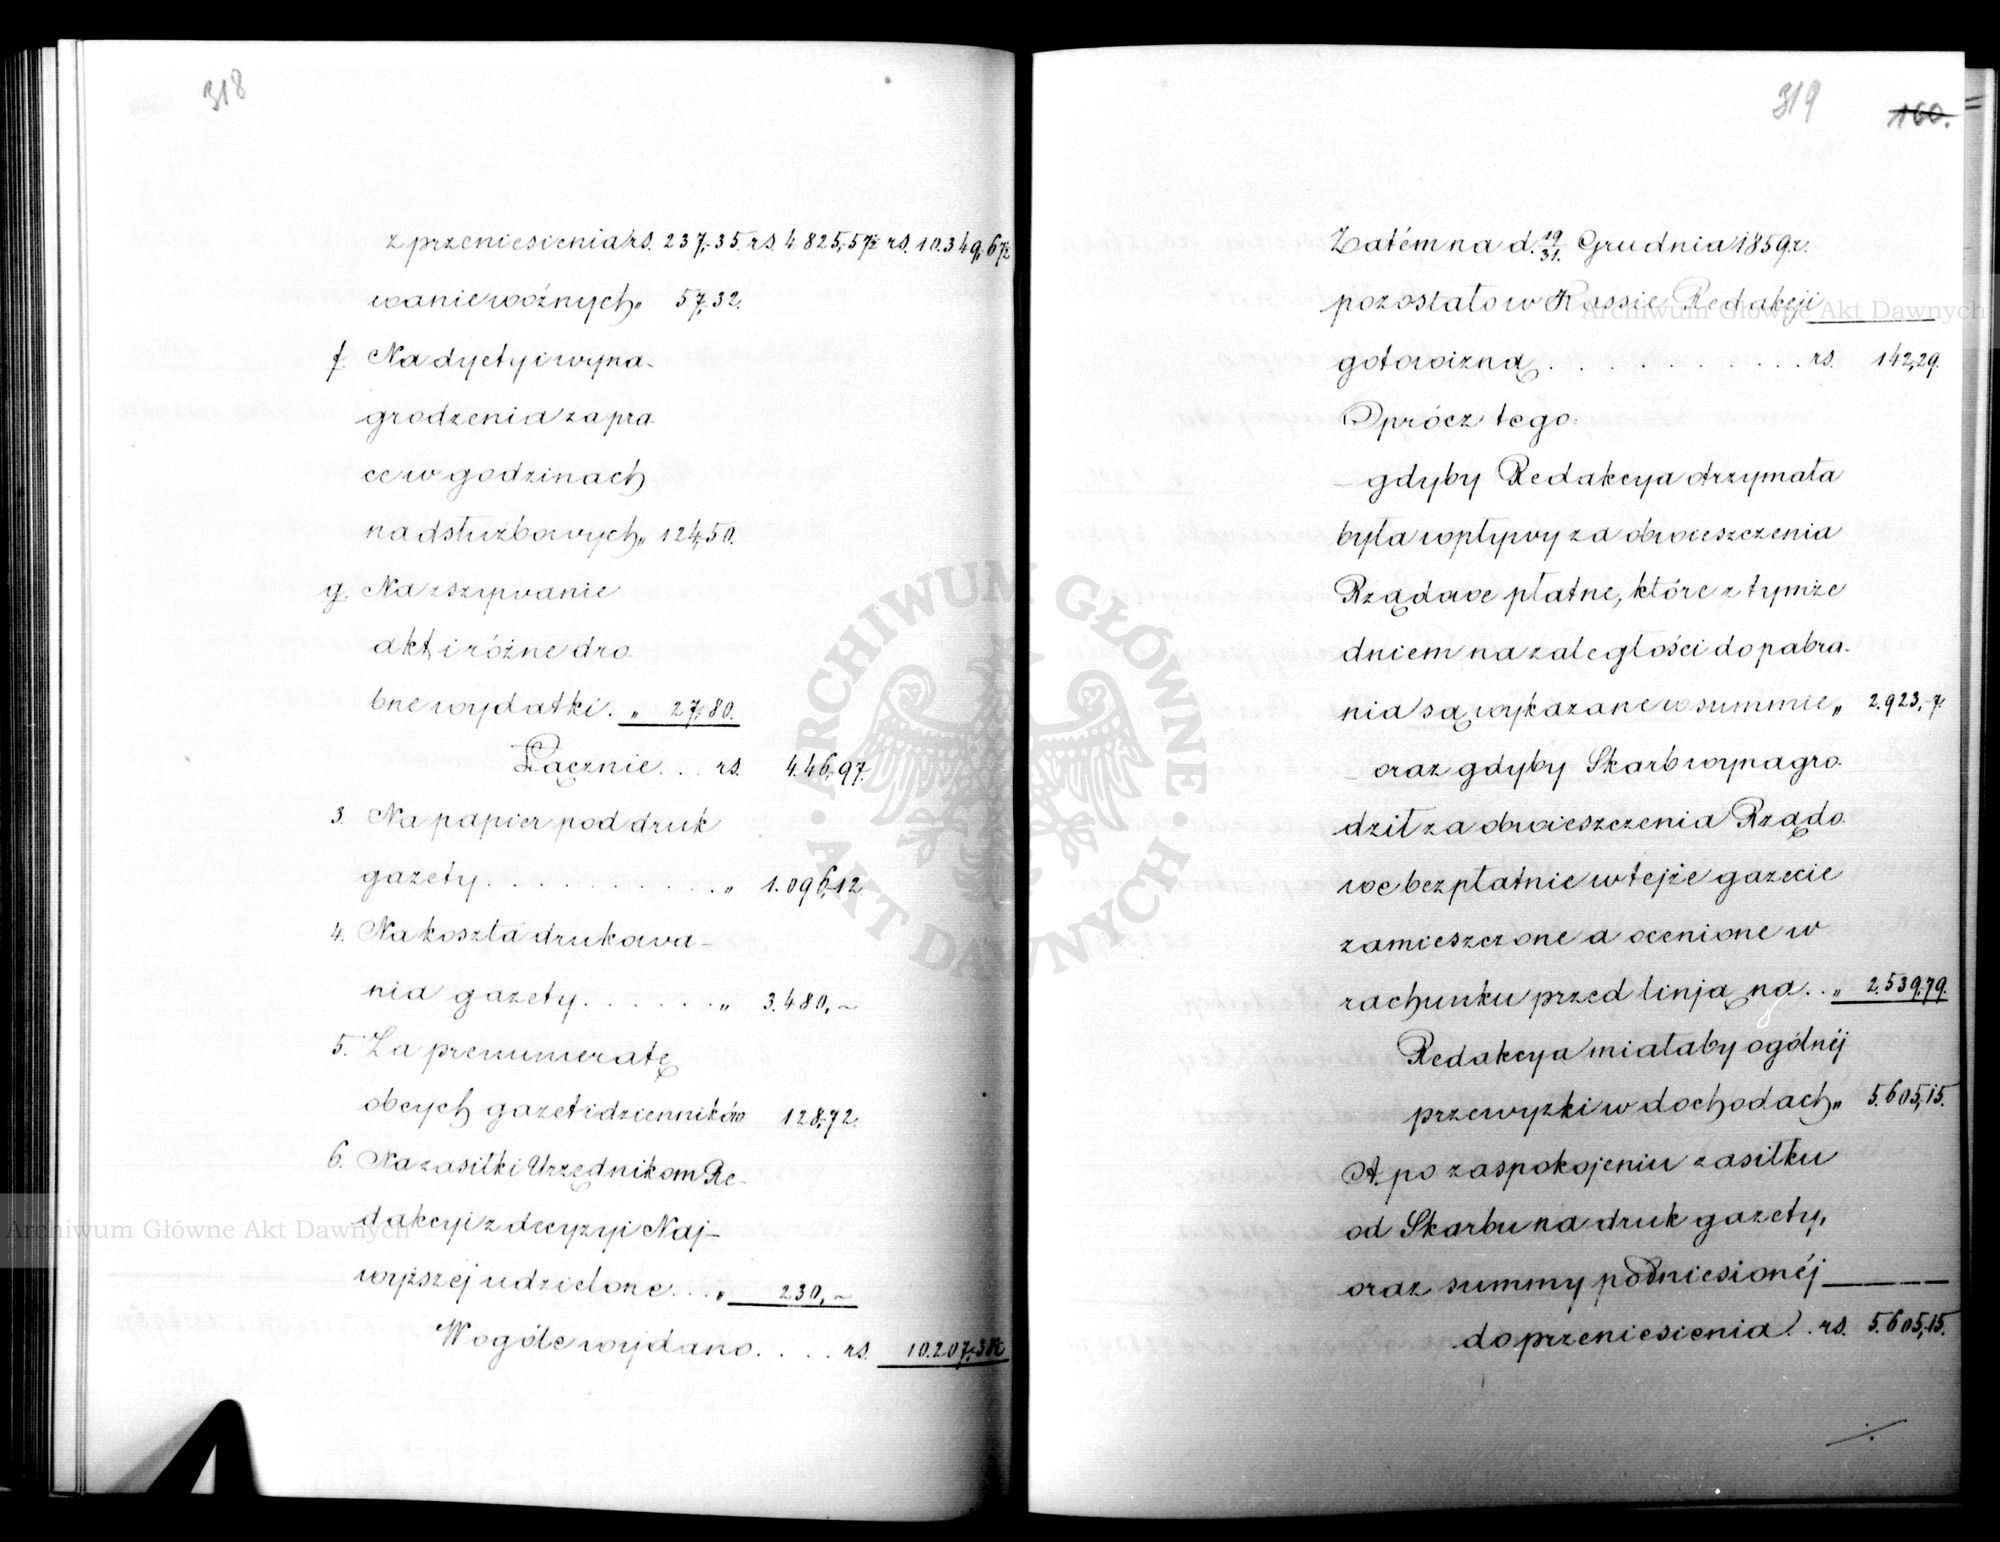 318
z przeniesienia rs. 237,35. rs. 4825,57½ rs. 10.349,67½
wanie woźnych „ 57,32.
f. Na dyety i wyna-
grodzenia za pra
ce w godzinach
nadsłużbowych „ 124,50.
g. Na zszywanie
akt i różne dro
bne wydatki. „ 27,80.
Łącznie . . rs. 446,97.
3. Na papier pod druk
gazety . . . . . . . . . . . „ 1.096,12
4. Na koszta drukowa-
nia gazety . . . . . . „ 3.480,~
5. Za prenumeratę
obcych gazet i dzienników 128,72.
6. Na zasiłki Urzędnikom Re-
dakcyi z decyzyi Naj-
wyższej udzielone . . „ 230,~
W ogóle wydano . . . . rs. 10.207,38½
319
160.
Zatém na d. 19/31. Grudnia 1859 r.
pozostało w Kassie Redakcji
gotowizną . . . . . . . . . . rs. 142,29.
Oprócz tego.
gdyby Redakcya otrzymała
była wpływy za obwieszczenia
Rządowe płatne, które z tymże
dniem na zaległości do pobra-
nia są wykazane w summie „ 2.923,7.
oraz gdyby Skarb wynagro-
dził za obwieszczenia Rządo
we bezpłatnie w tejże gazecie
zamieszczone a ocenione w
rachunku przed linją na . . „ 2.539,79.
Redakcya miałaby ogólnéj
przewyżki w dochodach „ 5.605,15.
A po zaspokojeniu zasiłku
od Skarbu na druk gazety,
oraz summy podniesionéj
do przeniesienia . . rs. 5.605,15.
./.
ARCHIWUM GŁÓWNE
AKT DAWNYCH
Archiwum Główne Akt Dawnych
Archiwum Główne Akt Dawnych